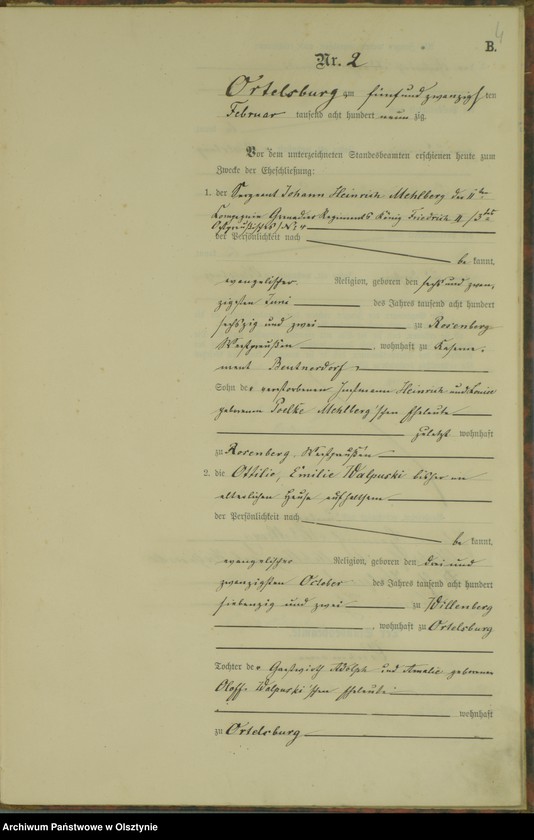 4
B.
Nr. 2
Ortelsburg am fünf und zwanzigsten
Februar tausend acht hundert neun zig.
Vor dem unterzeichneten Standesbeamten erschienen heute zum
Zwecke der Eheschließung:
1. der Sergeant Johann Heinrich Mehlberg der 11ten
Kompagnie Grenadier Regiments König Friedrich II /3tes
Ostpreußisches/ No 4
der Persönlichkeit nach
be kannt,
evangelischer Religion, geboren den sechs und zwan-
zigsten Juni des Jahres tausend acht hundert
sechszig und zwei zu Rosenberg
Westpreußen, wohnhaft zu
Beutnerdorf
Sohn der verstorbenen Heinrich und Louise
geborene Poelke Mehlberg'schen Eheleute
zuletzt wohnhaft
zu Rosenberg, Westpreußen
2. die Ottilie, Emilie Walpuski bisher im
elterlichen Hause aufhaltsam
der Persönlichkeit nach
be kannt,
evangelischer Religion, geboren den drei und
zwanzigsten October des Jahres tausend acht hundert
siebenzig und zwei zu Willenberg
, wohnhaft zu Ortelsburg
Tochter der Gastwirth Adolph und Amalie geborene
Oloff Walpuski'schen Eheleute
wohnhaft
zu Ortelsburg
Archiwum Państwowe w Olsztynie